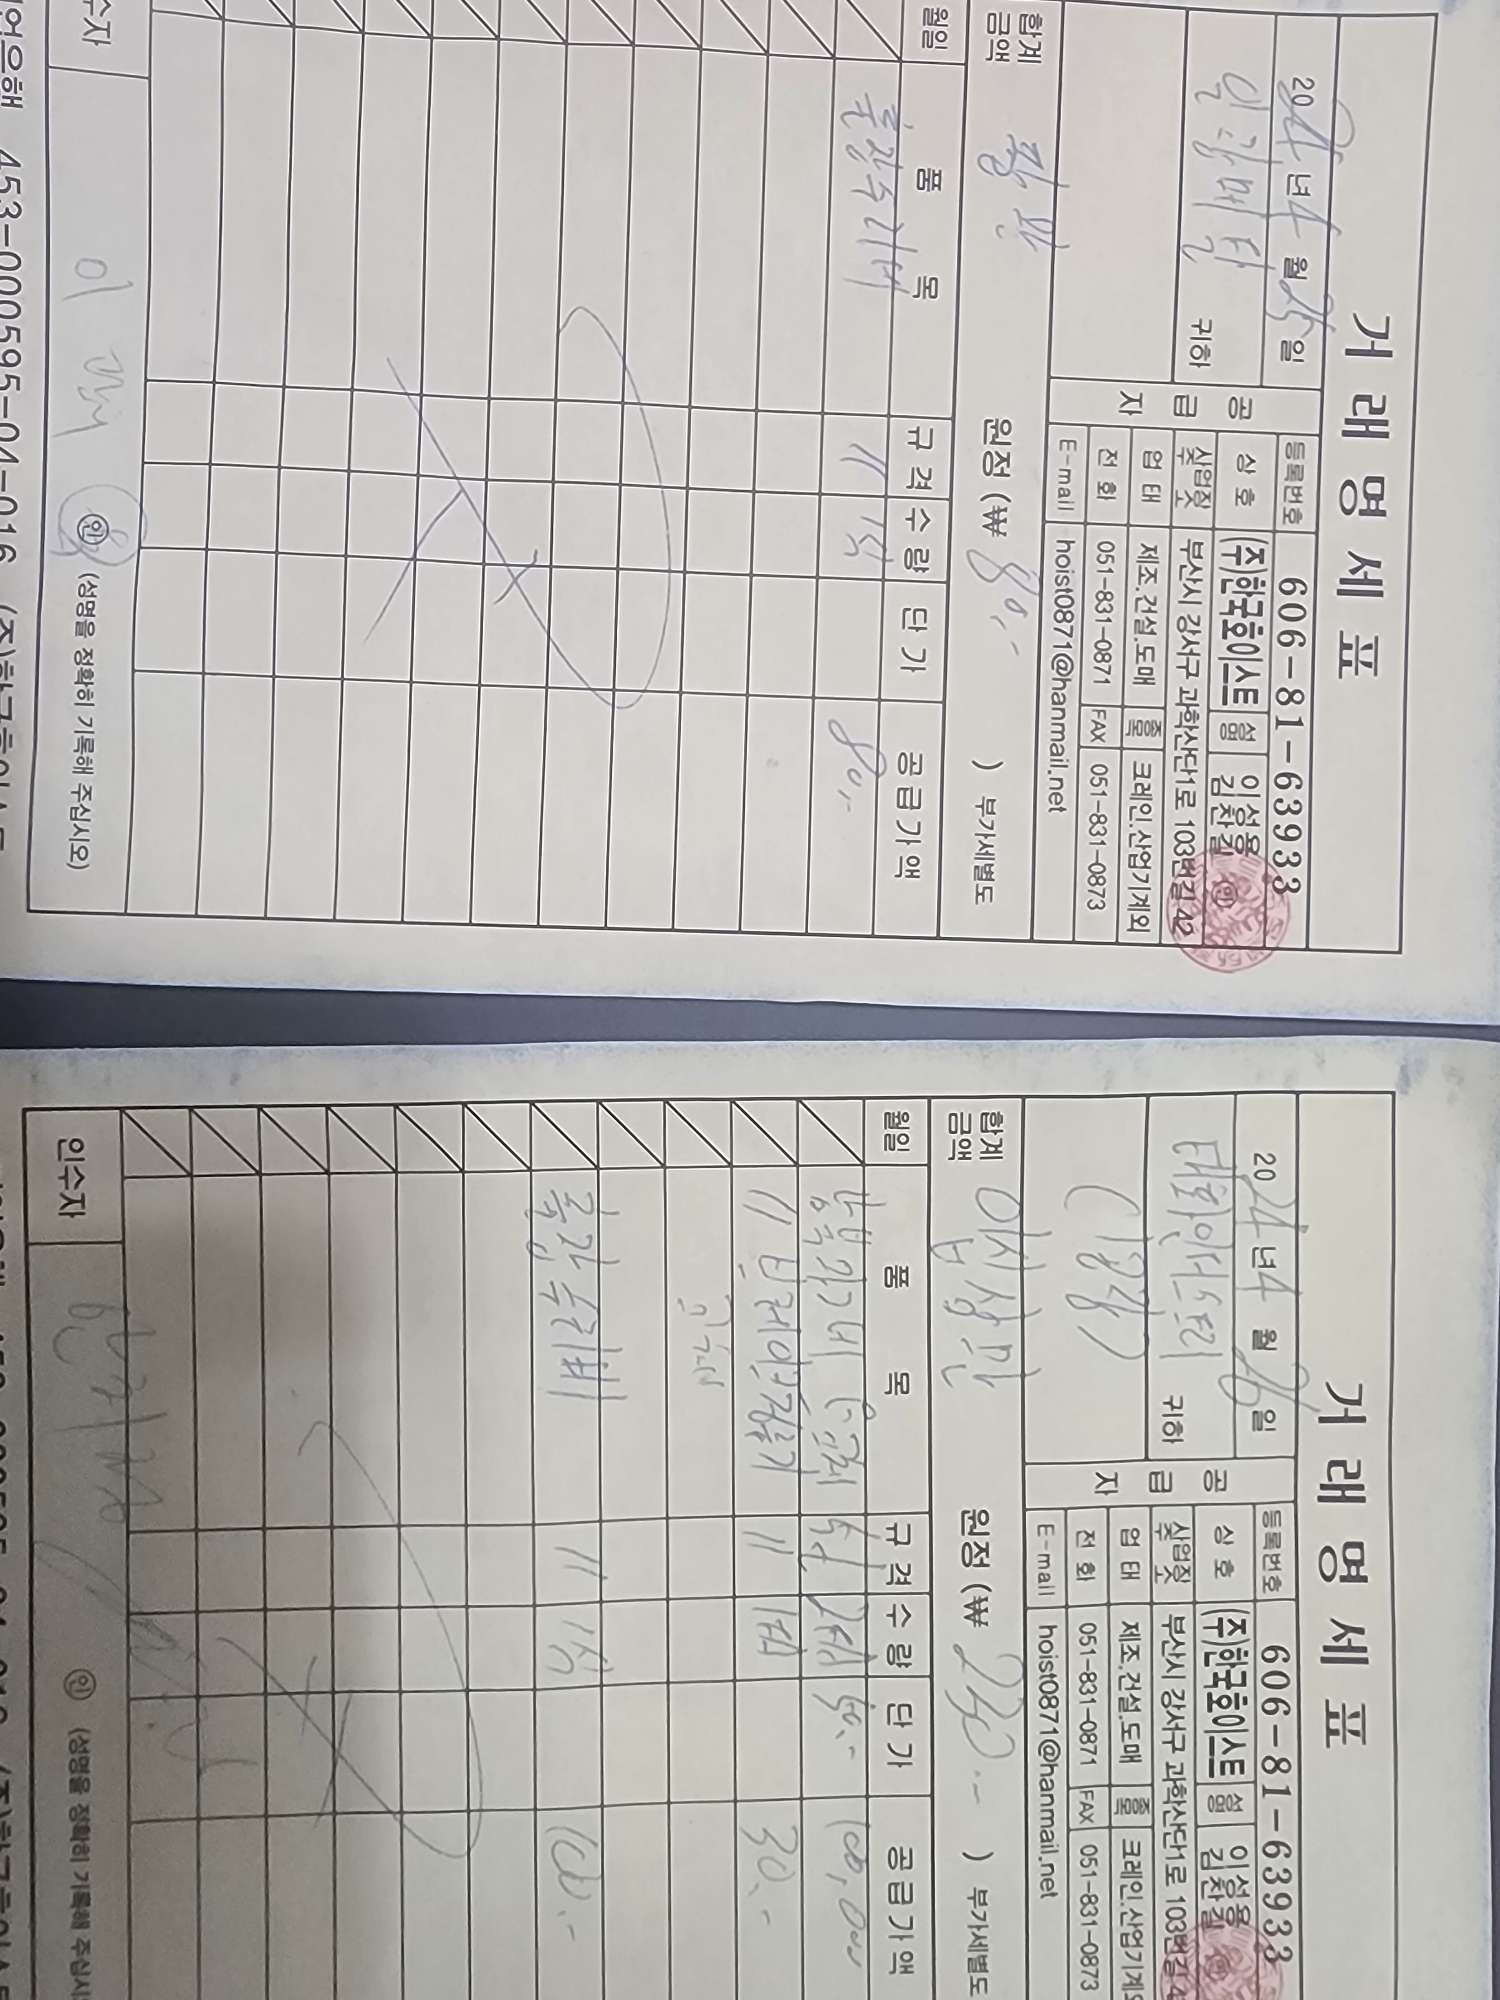 거래명세표
2024년 4월 25일
귀하
공급자
등록번호 606-81-63933
상호 (주)한국호이스트 성명 이성용 김찬길 ㊞
사업장주소 부산시 강서구 과학산단1로 103번길 42
업태 제조.건설.도매 종목 크레인.산업기계외
전화 051-831-0871 FAX 051-831-0873
E-mail hoist0871@hanmail.net
합계금액 팔만 원정 (₩ 80,- ) 부가세별도
월일 품목 규격 수량 단가 공급가액
출장수리비 〃 1식 80,-
수자 ㊞ (성명을 정확히 기록해 주십시오)
453-000595-04-016 (주)한국호이스트
거래명세표
2024년 4월 26일
귀하
공급자
등록번호 606-81-63933
상호 (주)한국호이스트 성명 이성용 김찬길
사업장주소 부산시 강서구 과학산단1로 103번길 4
업태 제조.건설.도매 종목 크레인.산업기계외
전화 051-831-0871 FAX 051-831-0873
E-mail hoist0871@hanmail.net
합계금액 이십삼만 원정 (₩ 230,- ) 부가세별도
월일 품목 규격 수량 단가 공급가액
50,- 100,000
〃 〃 30,-
출장수리비 〃 1식 100,-
인수자 ㊞ (성명을 정확히 기록해 주십시